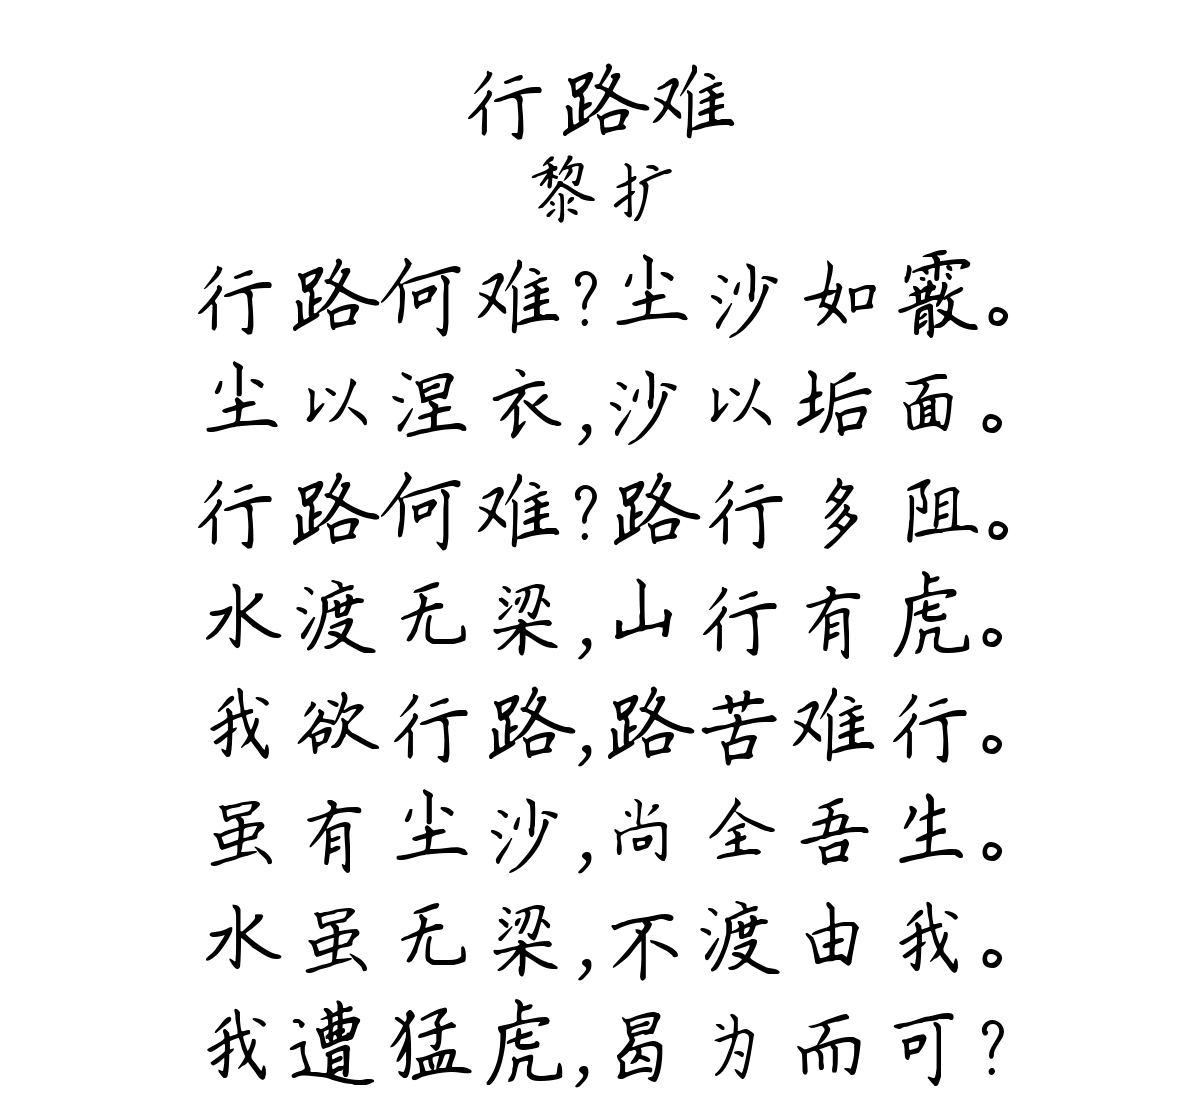 行路难
黎扩
行路何难?尘沙如霰。
尘以涅衣,沙以垢面。
行路何难?路行多阻。
水渡无梁,山行有虎。
我欲行路,路苦难行。
虽有尘沙,尚全吾生。
水虽无梁,不渡由我。
我遭猛虎,曷为而可?